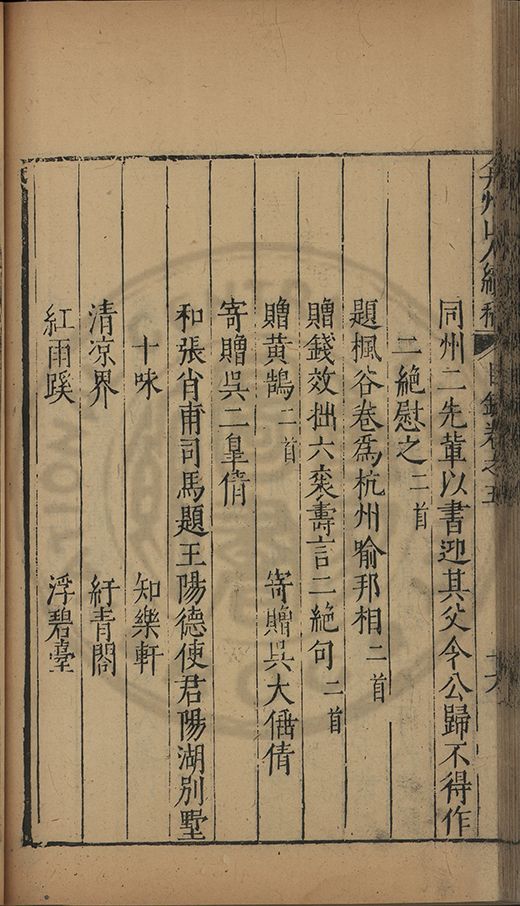 弇州山人續稿 目錄卷之五 十六
同州二先輩以書迎其父令公歸不得作
二絕慰之二首
題楓谷卷爲杭州喻邦相二首
贈錢效拙六袠壽言二絕句二首
贈黃鵠二首 寄贈吳大僑倩
寄贈吳二皇倩
和張肖甫司馬題王陽德使君陽湖別墅
十咏 知樂軒
清凉界 紆青閣
紅雨蹊 浮碧臺